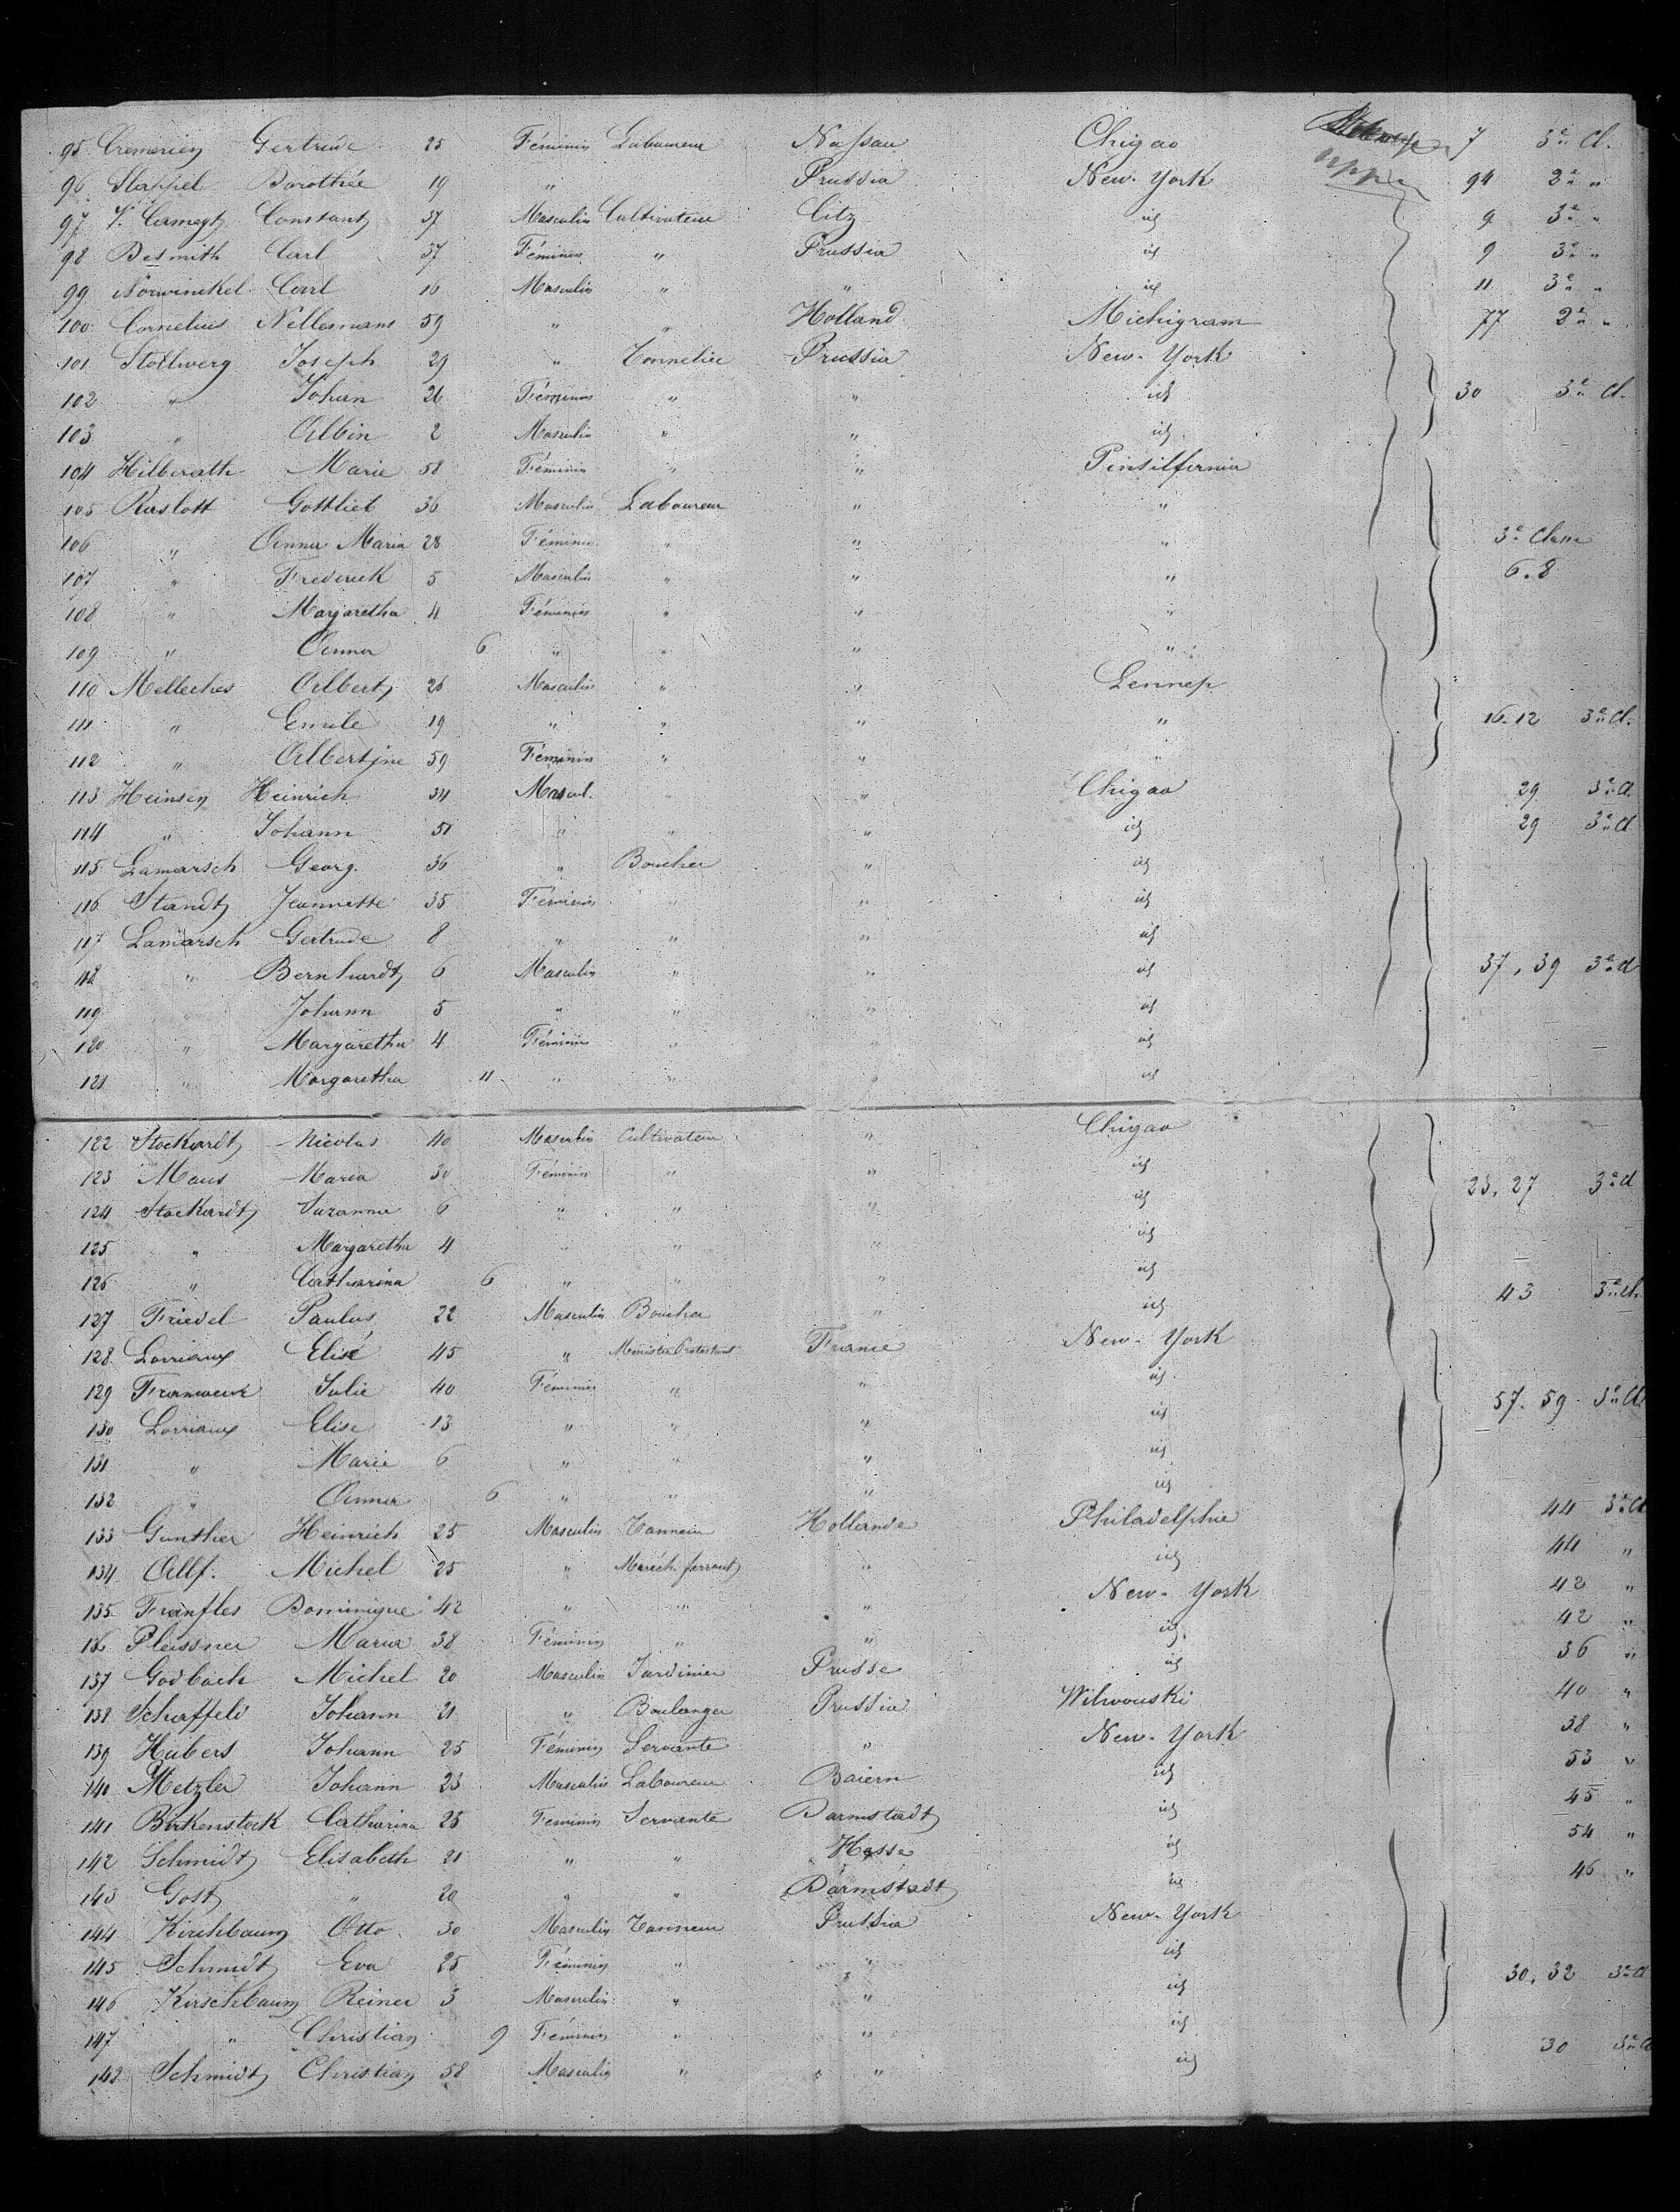 95 Cremerieux Gertrude 25 Féminin Laboureur Nassau Chigao 7 3e Cl.
96 Stappel Dorothée 19 " Prussia New-York 94 2e "
97 V. Cermeyt Constant 37 Masculin Cultivateur Citz id 9 3e "
98 Besmith Carl 37 Féminin " Prussia id 9 3e "
99 Norwinckel Carl 16 Masculin " " id 11 3e "
100 Cornelius Nellesmans 59 " " Holland Michigram 77 2e "
101 Stollwerg Joseph 29 " Tonnelier Prussia New-York
102 " Johan 26 Féminin " " id 30 3e Cl.
103 " Albin 2 Masculin " " id
104 Hilberath Marie 58 Féminin " " Pensilfernia
105 Raslott Gottlieb 36 Masculin Laboureur " "
106 " Anna Maria 28 Féminin " " " 3e Classe
107 " Frederick 5 Masculin " " " 6.8
108 " Margaretha 4 Féminin " " "
109 " Anna 6 " " " "
110 Melleches Albert 26 Masculin " " Lennep
111 " Emile 19 " " " " 16.12 3e Cl.
112 " Albertine 59 Féminin " " "
113 Heinsen Heinrich 34 Mascul. " " Chigao 29 3e Cl
114 " Johann 51 " " " id 29 3e Cl
115 Lamarsch Georg. 36 " Boucher " id
116 Standt Jeannette 35 Féminin " " id
117 Lamarsch Gertrude 8 " " " id
118 " Bernhardt 6 Masculin " " id 37, 39 3e Cl
119 " Johann 5 " " " id
120 " Margaretha 4 Féminin " " id
121 " Margaretha 11 " " " id
122 Stockardt Nicolas 40 Masculin Cultivateur " Chigao
123 Maus Maria 30 Féminin " " id 23, 27 3e Cl
124 Stockardt Suzanna 6 " " " id
125 " Margaretha 4 " " " id
126 " Catharina 6 " " " id
127 Friedel Paulus 22 Masculin Boucher " id 43 3e Cl.
128 Lorriaux Elisé 45 " Ministre Protestant France New-York
129 Julie 40 Féminin " " id 57.59 3e Cl
130 Lorriaux Elise 13 " " " id
131 " Marie 6 " " " id
132 " Anna 6 " " " id
133 Gunther Heinrich 25 Masculin Tanneur Hollande Philadelphie 44 3e Cl
134 Allf. Michel 25 " Maréch. ferrant " id 44 "
135 Franfles Dominique 42 " " " New-York 42 "
136 Pleissner Maria 38 Féminin " " id. 42 "
137 Godbach Michel 20 Masculin Jardinier Prusse id 36 "
138 Schaffeld Johann 21 " Boulanger Prussia Wilwouski 40 "
139 Hubers Johann 25 Féminin Servante " New-York 38 "
140 Metzler Johann 23 Masculin Laboureur Baiern id 53 "
141 Birkenstock Catharina 25 Féminin Servante Darmstadt id 45 "
142 Schmidt Elisabeth 21 " " Hesse id 54 "
143 Gost " 20 " " Darmstadt id 46 "
144 Kirschbaum Otto 30 Masculin Tanneur Prussia New-York
145 Schmidt Eva 25 Féminin " " id 30, 32 3e Cl
146 Kirschbaum Reiner 3 Masculin " " id
147 " Christian 9 Féminin " " id
148 Schmidt Christian 58 Masculin " " id 30 3e Cl